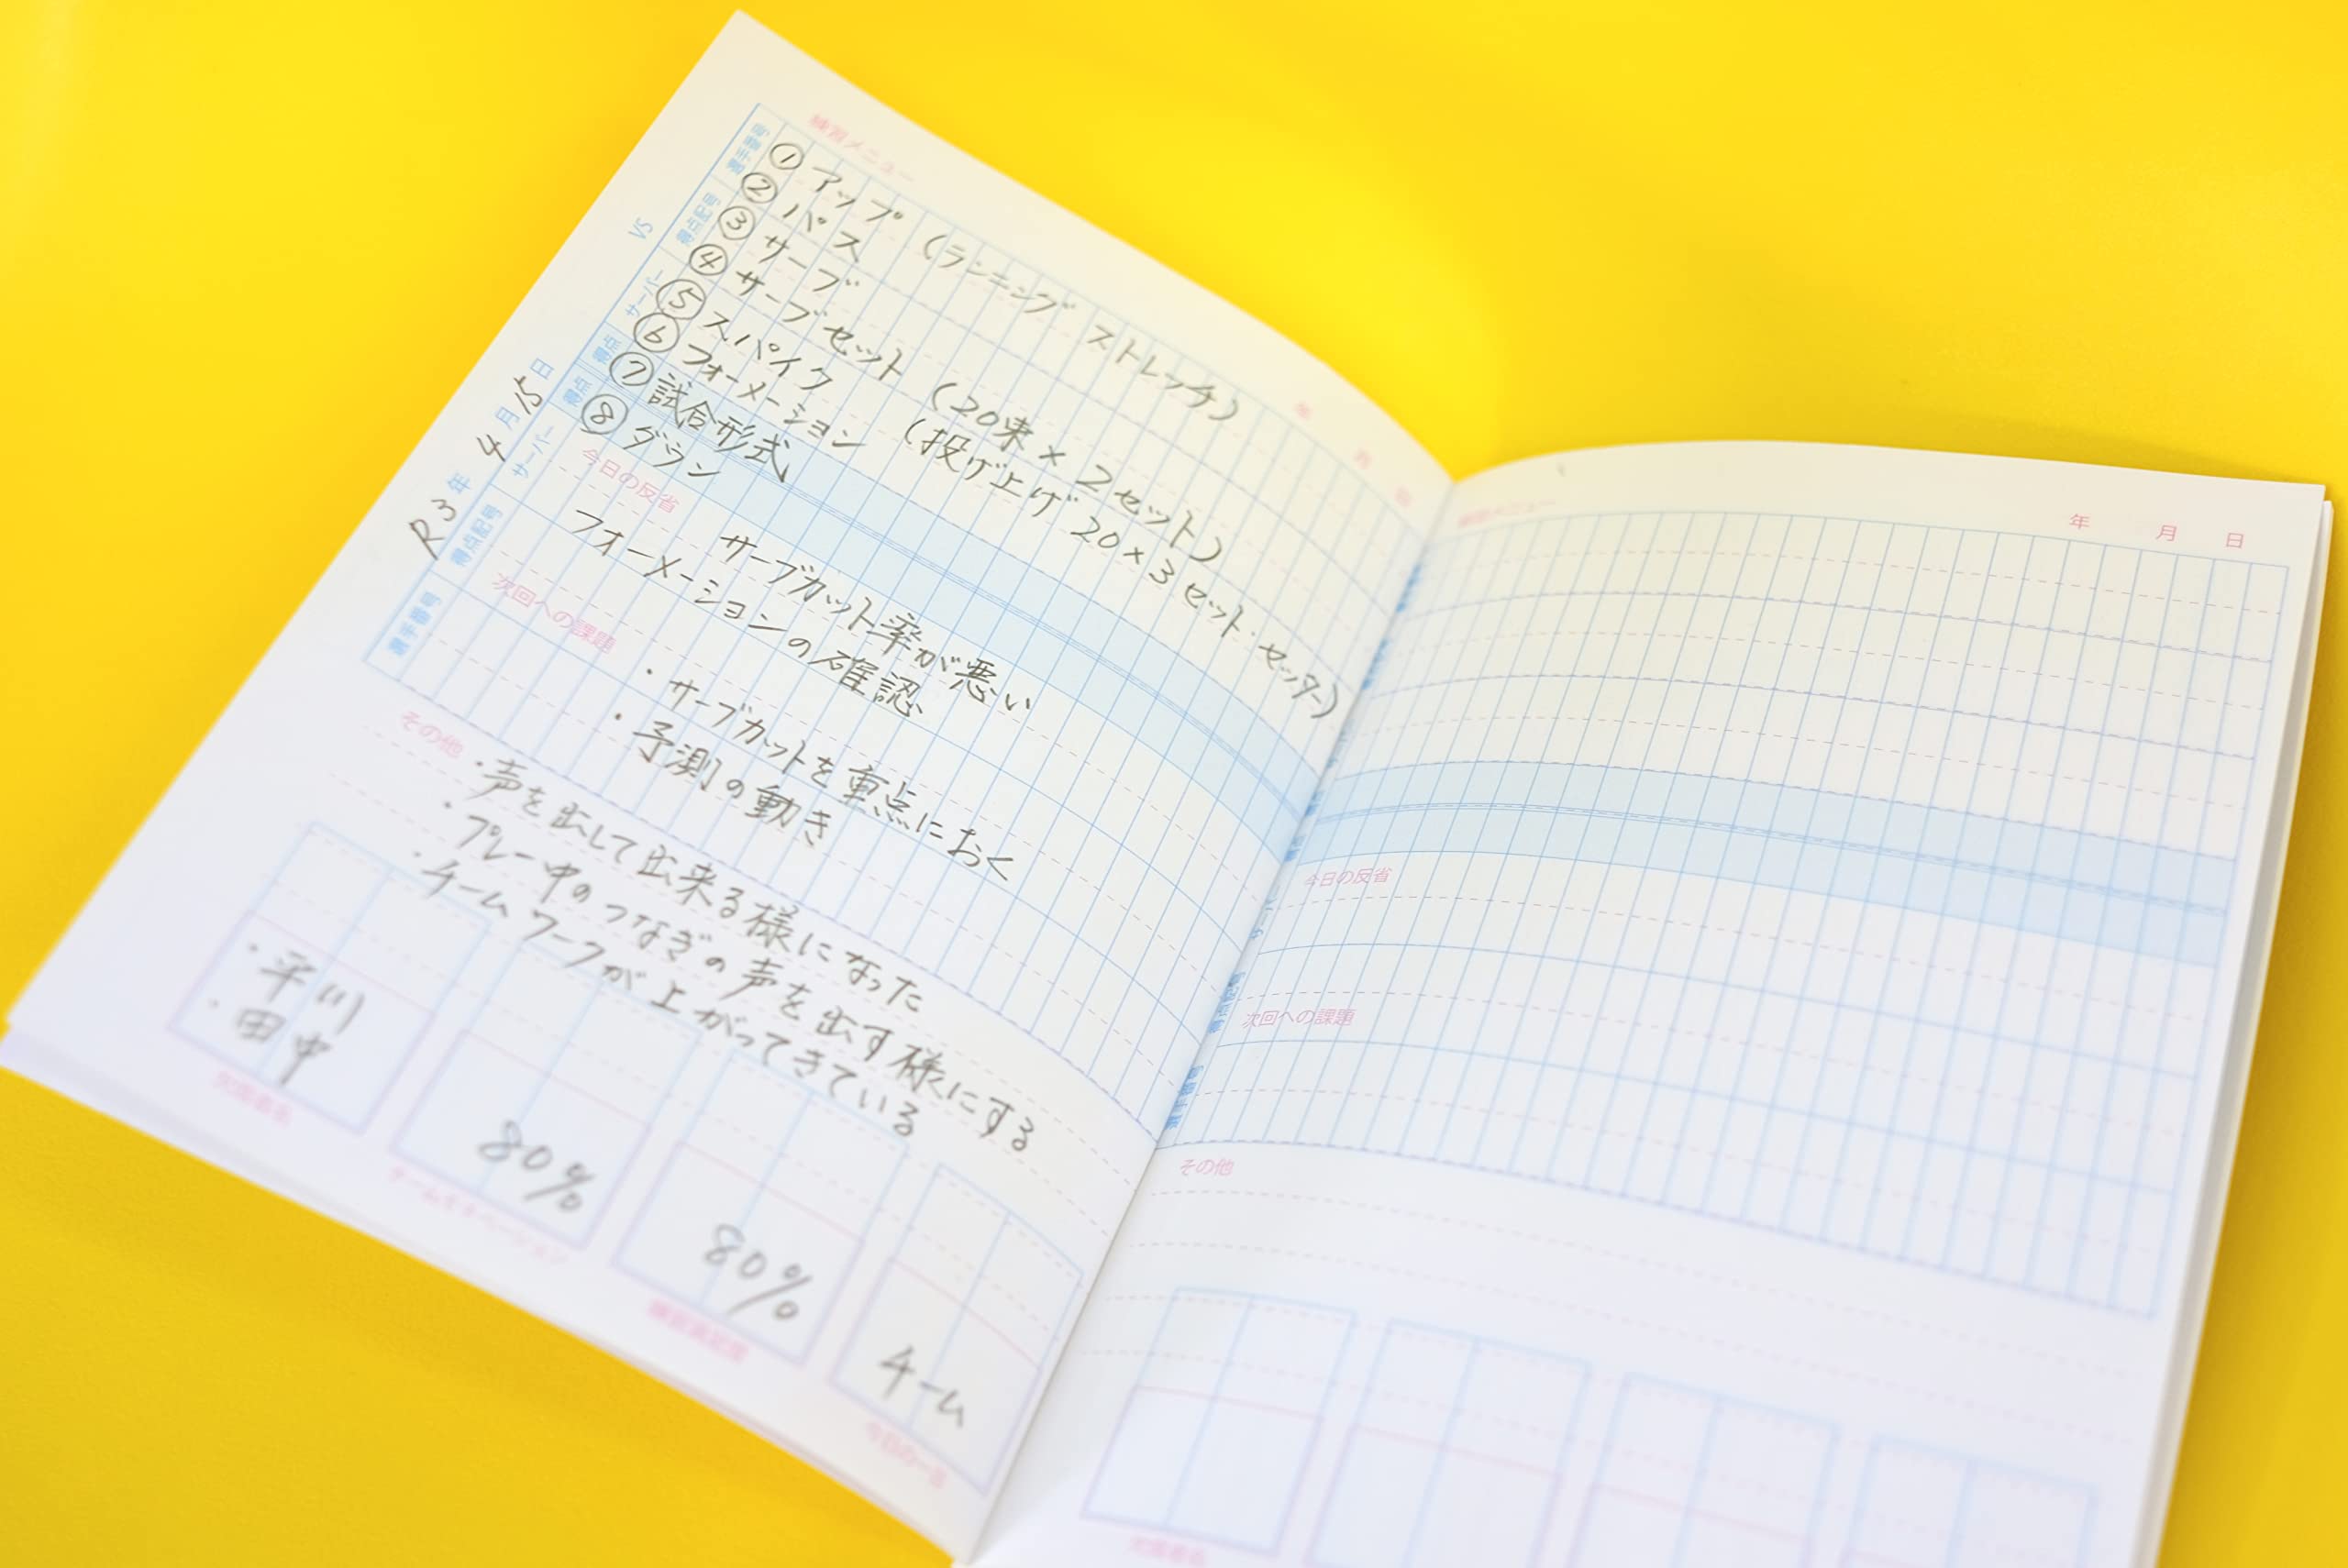 練習メニュー
年 月 日
① アップ (ランニング ストレッチ)
② パス
③ サーブ
④ サーブセット (20束 × 2セット)
⑤ スパイク (投げ上げ 20×3セット・セッター)
⑥ フォーメーション
⑦ 試合形式
⑧ ダウン
選手番号
得点記号
サーバー
得点
得点
サーバー
得点記号
選手番号
VS
R3年 4月 15日
今日の反省
サーブカット率が悪い
フォーメーションの確認
次回への課題
・サーブカットを重点におく
・予測の動き
その他
・声を出して出来る様になった
・プレー中のつなぎの声を出す様にする
・チームワークが上がってきている
・平川
・田中
80%
80%
チーム
欠席者名
チームモチベーション
練習満足度
今日の一言
練習メニュー
年 月 日
今日の反省
次回への課題
その他
欠席者名